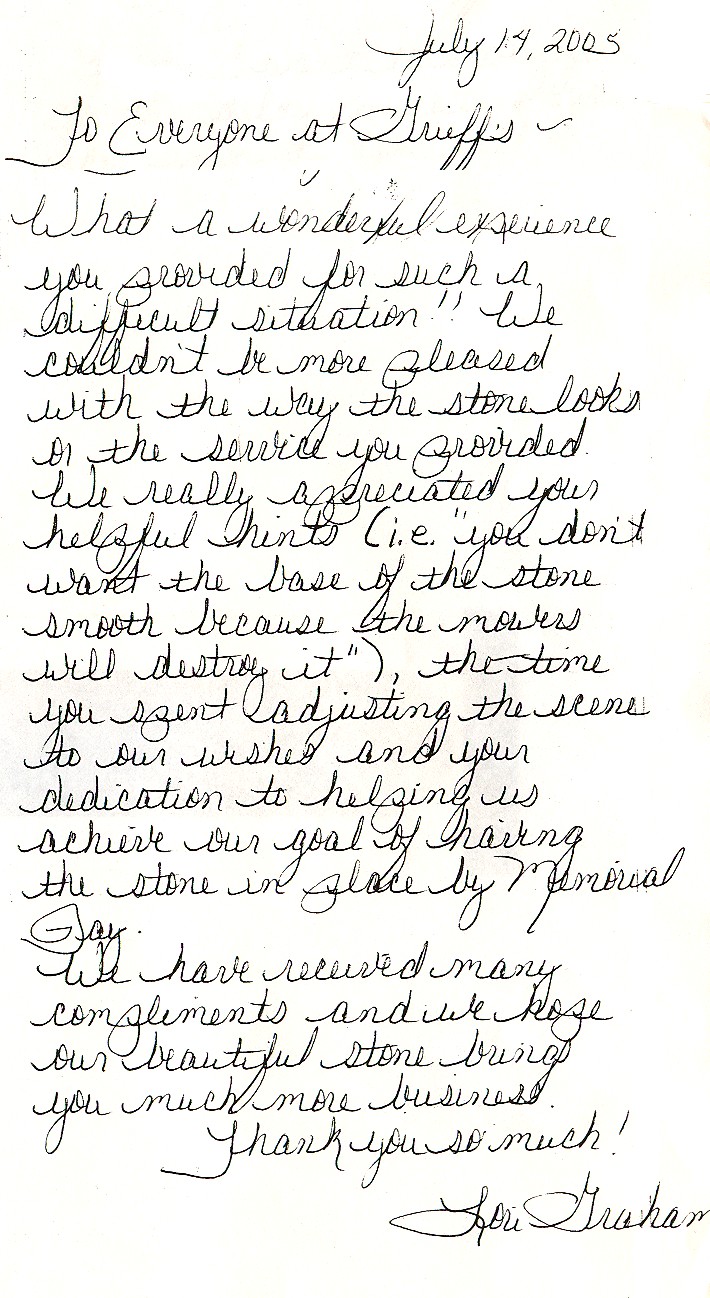 July 14, 2005
To Everyone at Grieff's ~
What a wonderful experience
you provided for such a
difficult situation!! We
couldn't be more pleased
with the way the stone looks
or the service you provided.
We really appreciated your
helpful hints (i.e. "you don't
want the base of the stone
smooth because the mowers
will destroy it"), the time
you spent adjusting the scene
to our wishes and your
dedication to helping us
achieve our goal of having
the stone in place by Memorial
Day.
We have received many
compliments and we hope
our beautiful stone brings
you much more business.
Thank you so much!
Lori Graham